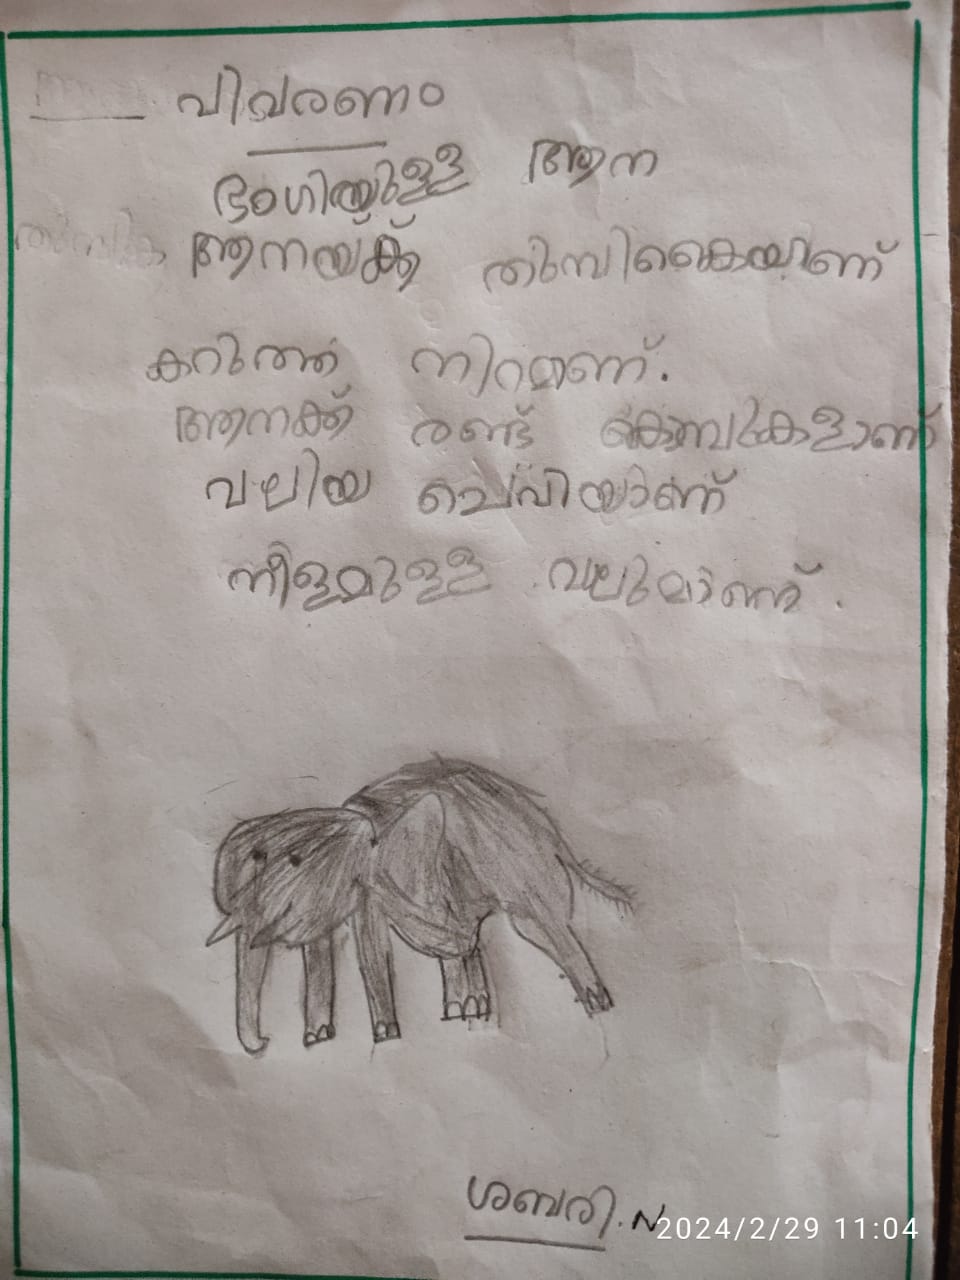 വിവരണം
ഭംഗിയുള്ള ആന
ആനയ്ക്ക് തുമ്പികൈയാണ്
കറുത്ത നിറമണ്.
ആനക്ക് രണ്ട് കൊമ്പുകളാണ്
വലിയ ചെവിയാണ്
നീളമുള്ള വലുമാണ്.
ശബരി. N
2024/2/29 11:04